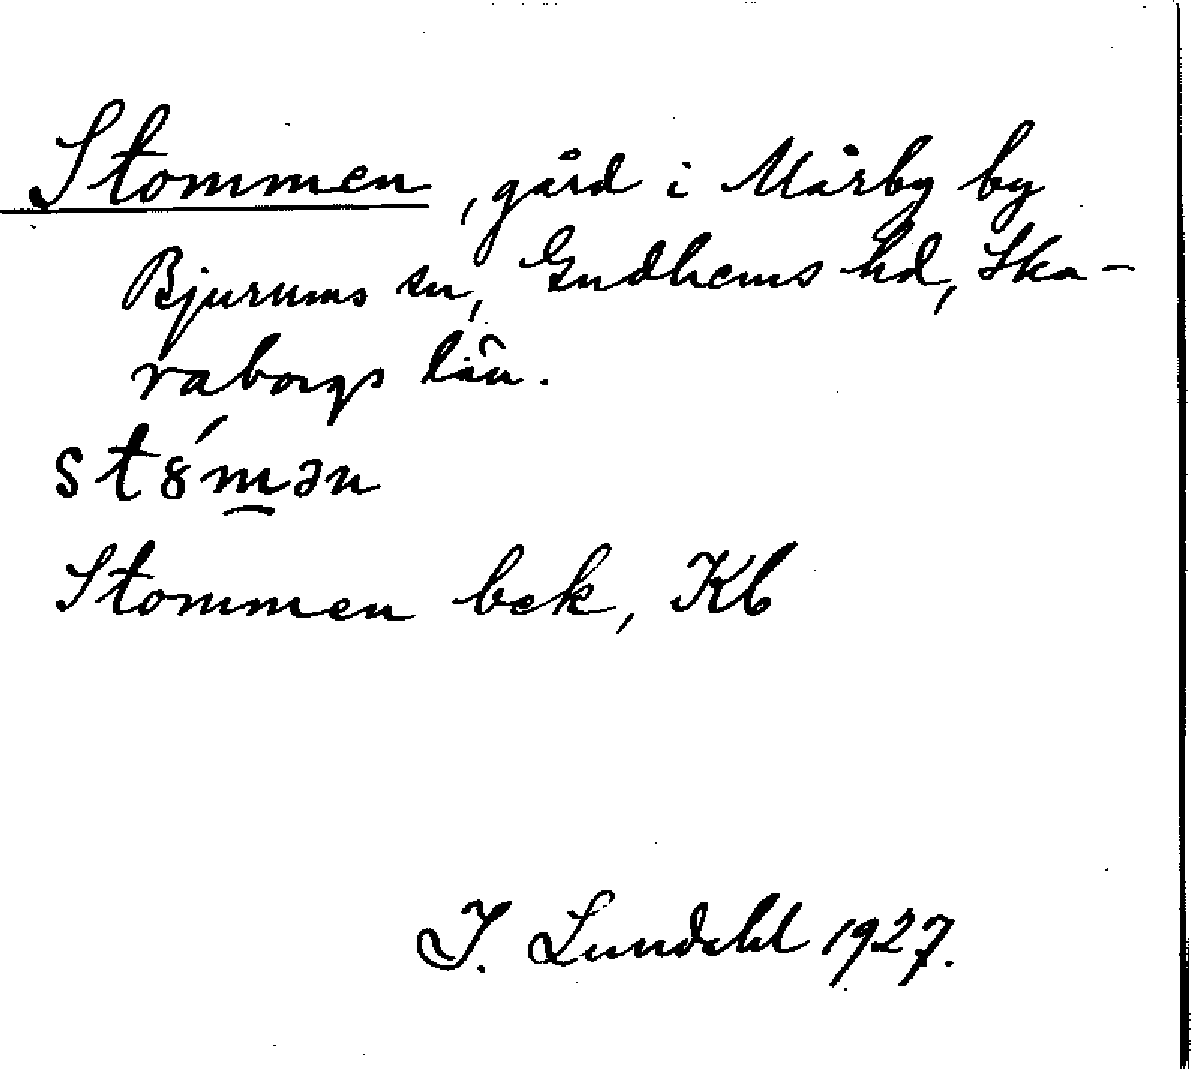 Stommen, gård i Mårby by
Bjurums sn, Gudhems hd, Ska-
raborgs län.
st8́m̲ən
Stommen bek, Kb
I. Lundahl 1927.